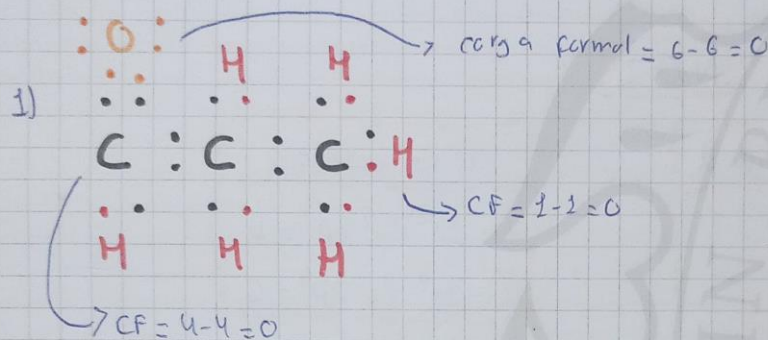 :O: → carga formal = 6-6=0
H H
1)
C : C : C : H
CF = 1-1=0
H H H
CF = 4-4=0